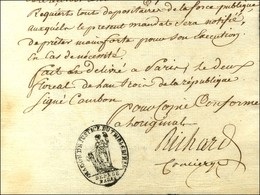 Requiert tout depositaire de la force publique
auxquels le present mandat sera notifié
de prêter mainforte pour son Execution
En cas de nécessité.
fait et délivré a Paris le deux
floreal de l'an trois de la république
Signé Cambon
Pour Copie Conforme
a l'original
Richard
Concierge